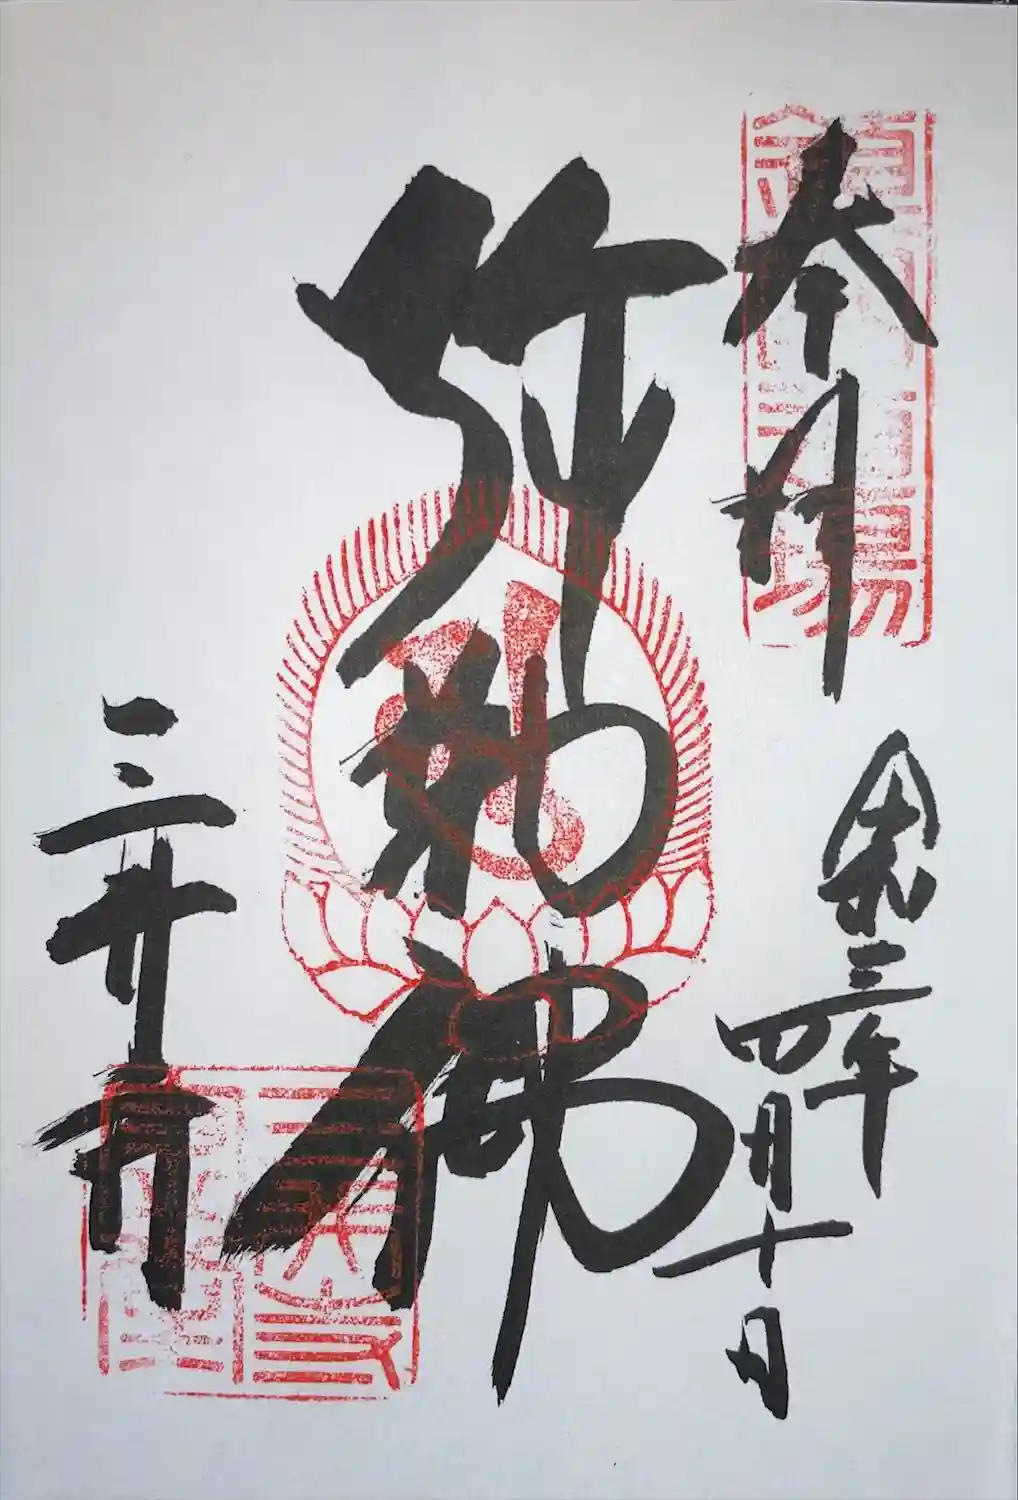 奉拝
令和三年
四月十日
弥勒佛
三井寺